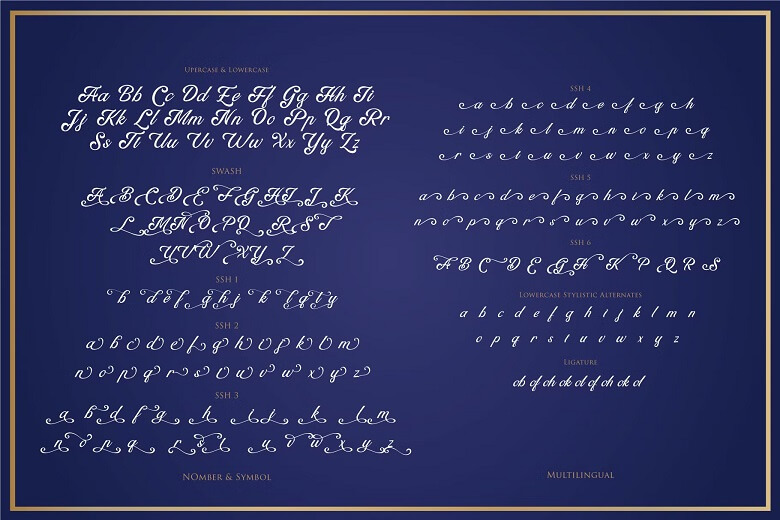 Upercase & Lowercase
Aa Bb Cc Dd Ee Ff Gg Hh Ii
Jj Kk Ll Mm Nn Oo Pp Qq Rr
Ss Tt Uu Vv Ww Xx Yy Zz
SWASH
A B C D E F G H I J K
L M N O P Q R S T
U V W X Y Z
SSH 1
b d e f g h j k l q t y
SSH 2
a b c d e f g h i j k l m
n o p q r s t u v w x y z
SSH 3
a b d f g h i j k l m
n o p q r s t u v w x y z
NOmber & Symbol
SSH 4
a b c d e f g h
i j k l m n o p q
r s t u v w x y z
SSH 5
a b c d e f g h i j k l m
n o p q r s t u v w x y z
SSH 6
A B C D E G H K P Q R S
Lowercase Stylistic Alternates
a b c d e f g h i j k l m n
o p q r s t u v w x y z
Ligature
ob of oh ok ol of oh ok ol
Multilingual